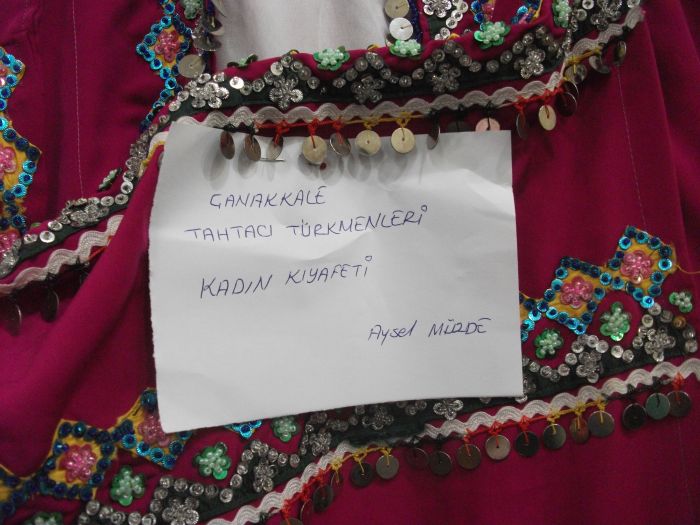 ÇANAKKALE
TAHTACI TÜRKMENLERİ
KADIN KIYAFETİ
Aysel